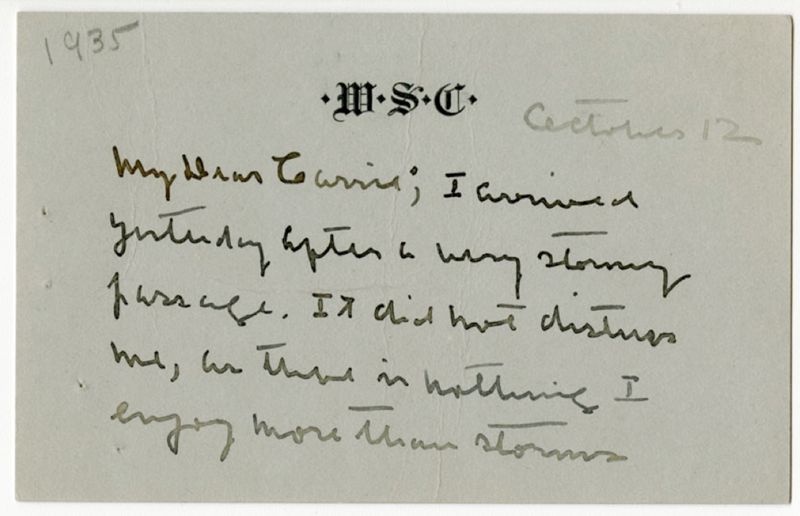 1935
·W·S·C·
October 12
My Dear Carrie; I arrived
yesterday after a very stormy
passage. It did not distress
me, as there is nothing I
enjoy more than storms